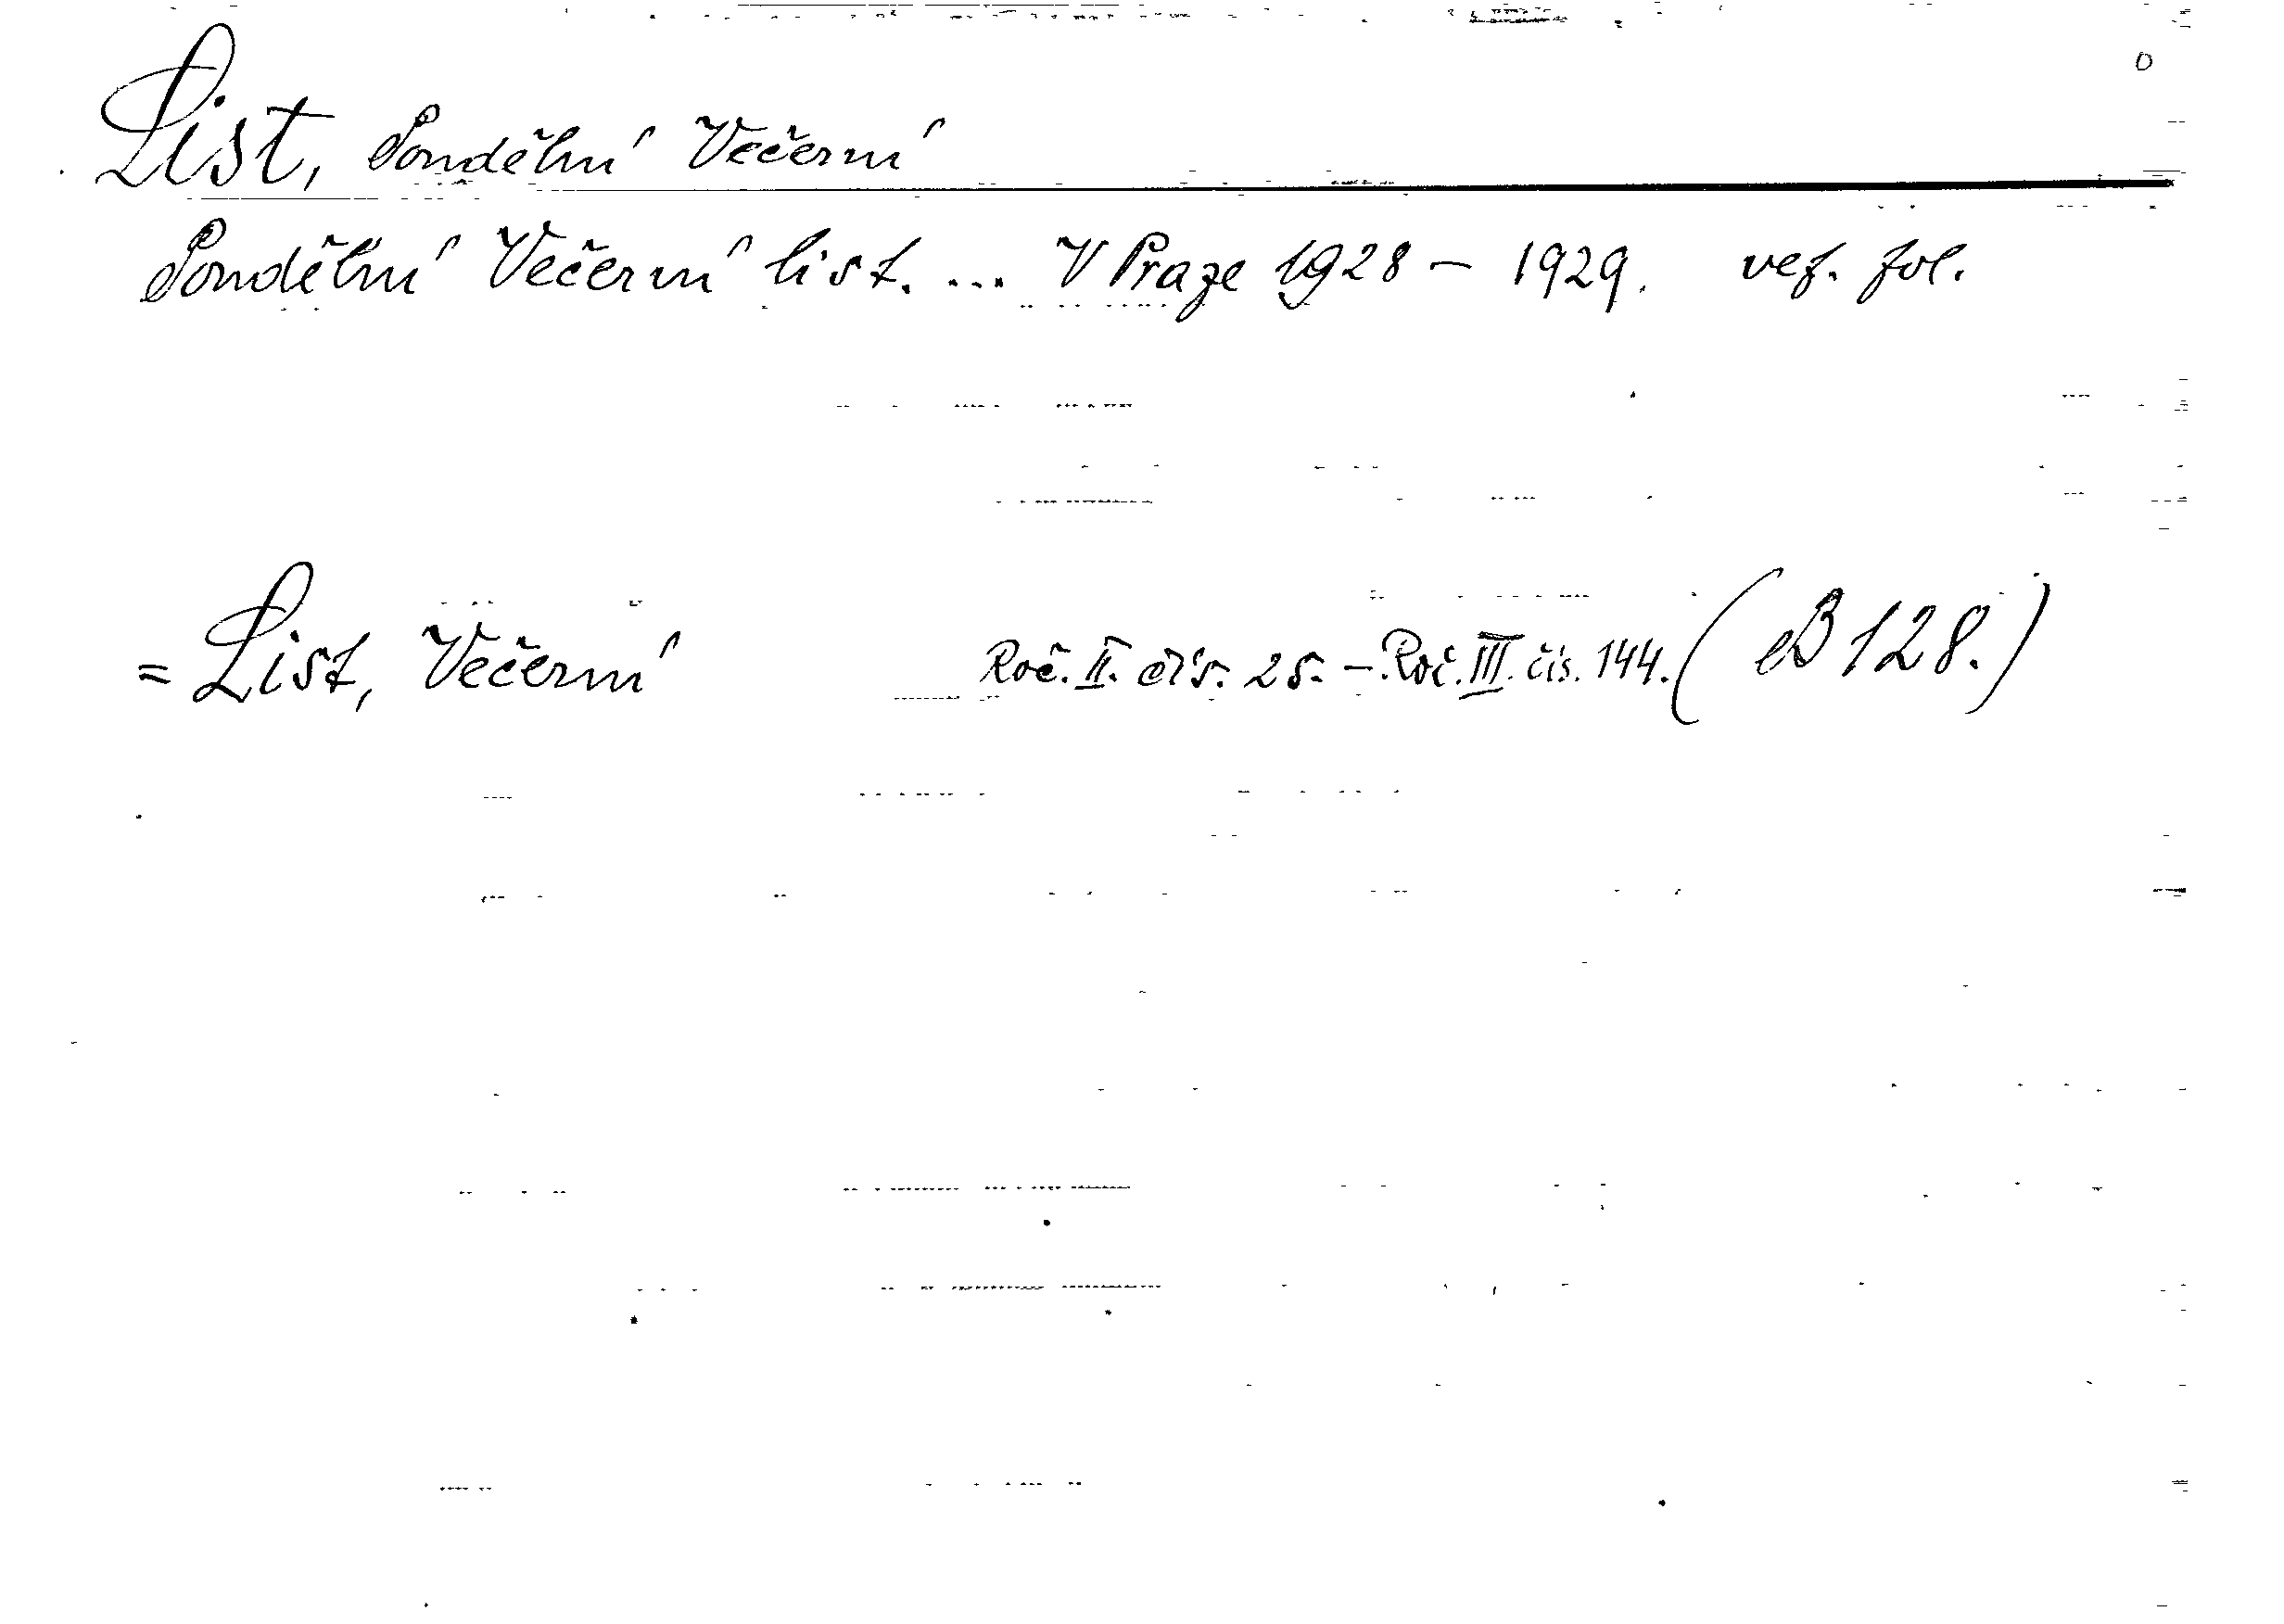 O
List, Pondělní Večerní
Pondělní Večerní list. ... V Praze 1928 – 1929. vel. fol.
= List, Večerní Roč. II. čís. 25. – Roč. III. čís. 144. (B 128.)